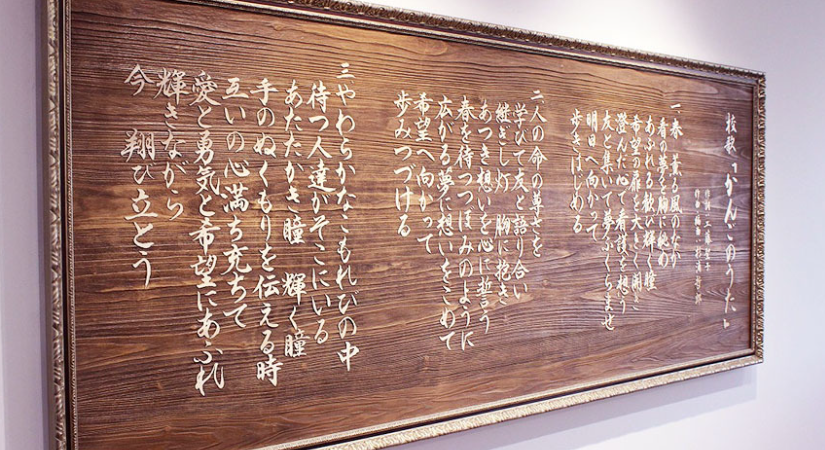 校歌 「かんごのうた」
作詞 工藤
作曲・編曲
一 春 薫る風のなか
の夢を胸に
あふれる歓び輝く瞳
希望の扉を大きく開き
澄んだ心で看護を想う
友と集いて夢ふくらませ
明日へ向かって
歩きはじめる
二 人の命の尊さを
学びて友と語り合い
継ぎし灯 胸に抱き
あつき想いを心に誓う
春を待つつぼみのように
広がる夢に想いをこめて
希望へ向かって
歩みつづける
三 やわらかなこもれびの中
待つ人達がそこにいる
あたたかき瞳 輝く瞳
手のぬくもりを伝える時
互いの心満ち充ちて
愛と勇気と希望にあふれ
輝きながら
今 翔び立とう